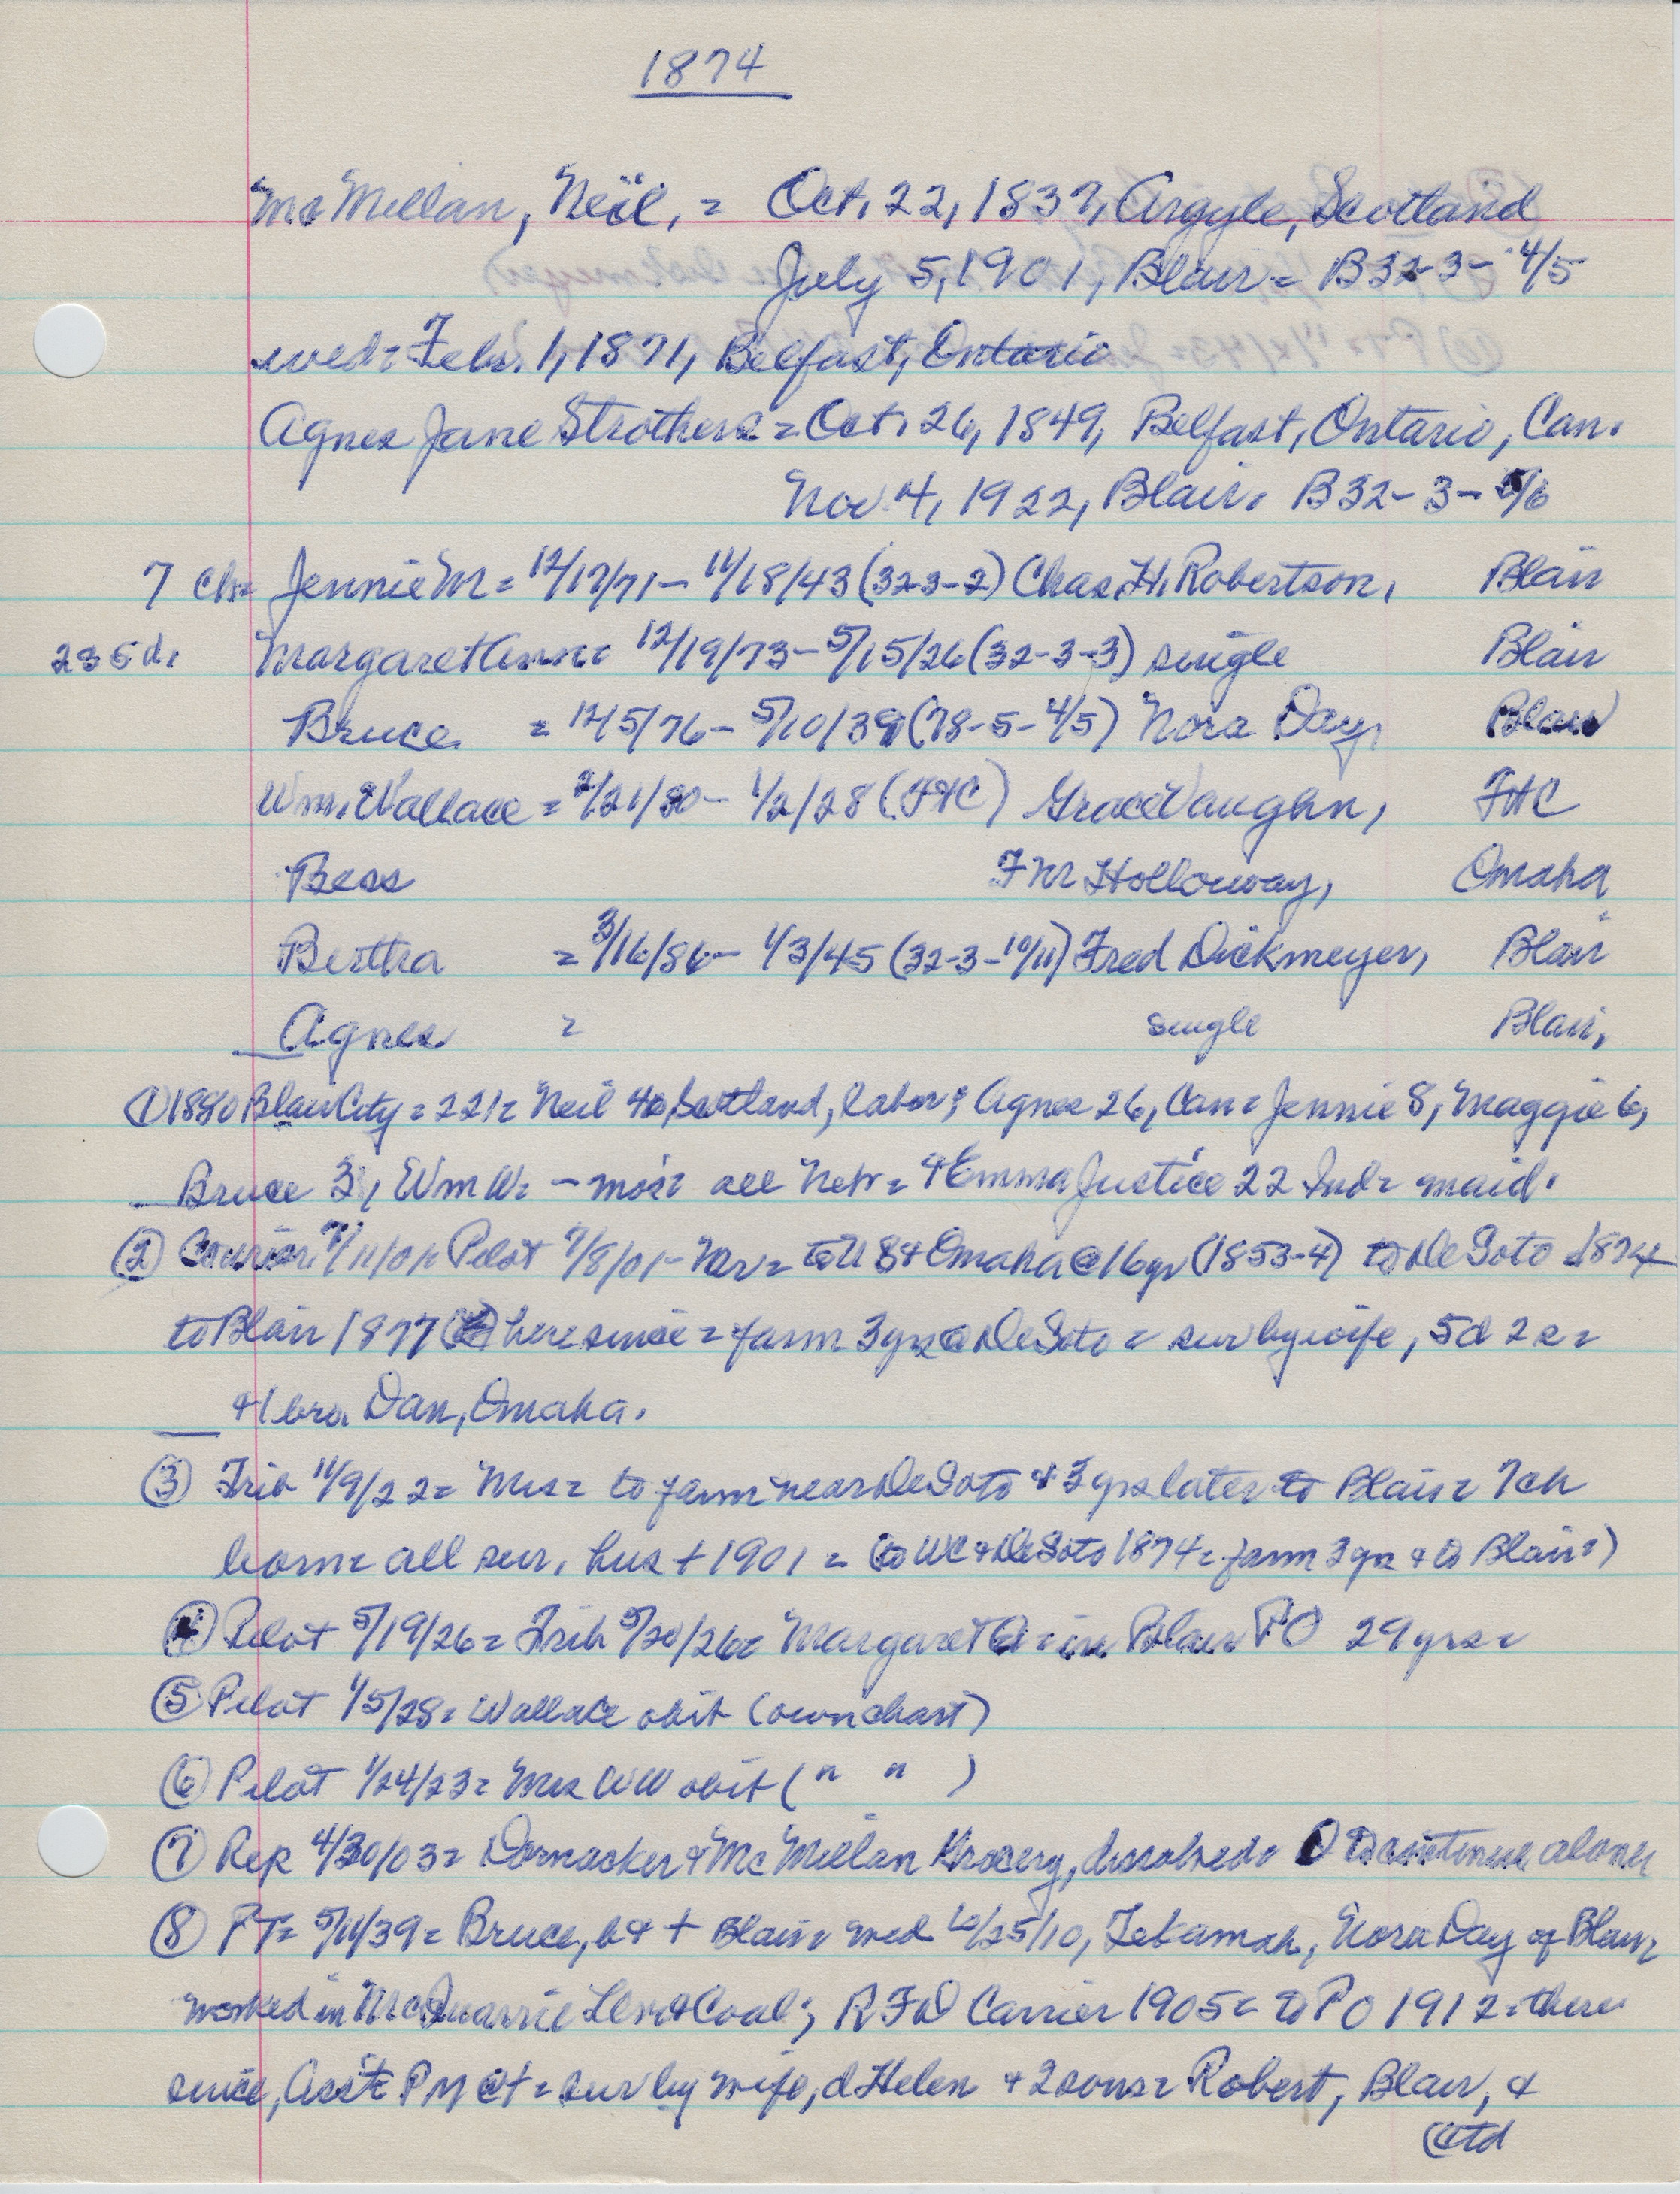 1874
McMellan, Neil, = Oct. 22, 1837, Argyle, Scotland
July 5, 1901, Blair = B32-3-4/5
wed = Feb. 1, 1871, Belfast, Ontario
Agnes Jane Strothers = Oct. 26, 1849, Belfast, Ontario, Can.
Nov. 4, 1922, Blair. B32-3-5/6
7 ch = Jennie M = 12/17/71 - 11/18/43 (32-3-2) Chas. H. Robertson, Blair
2s 5d. Margaret Ann = 12/19/73 - 5/15/26 (32-3-3) single Blair
Bruce = 12/5/76 - 5/10/39 (78-5-4/5) Nora Day, Blair
Wm. Wallace = 2/21/80 - 1/2/28 (FtC) Grace Vaughn, FtC
Bess F M Holloway, Omaha
Bertha = 3/16/86 - 1/3/45 (32-3-10/11) Fred Dickmeyer, Blair
Agnes = single Blair,
① 1880 Blair City = 221 = Neil 40, Scotland, labor; Agnes 26, Can = Jennie 8, Maggie 6,
Bruce 3, Wm W. - mos = all Nebr = + Emma Justice 22 Ind = maid.
② Courier 7/11/01 Pilot 7/8/01 - Mr = to U S & Omaha @ 16 yr (1853-4) to DeSoto 1874
to Blair 1877 here since = farm 3 yrs @ DeSoto = sur by wife, 5d 2s =
+ 1 bro. Dan, Omaha.
③ Trib 11/9/22 = Mrs = to farm near DeSoto & 3 yrs later to Blair = 7 ch
born = all sur, hus + 1901 = (to WC & DeSoto 1874 = farm 3 yrs & to Blair =)
④ Pilot 5/19/26 = Trib 5/20/26 = Margaret A = in Blair PO 29 yrs =
⑤ Pilot 1/5/28 = Wallace obit (own chart)
⑥ Pilot 1/24/23 = Mrs WW obit (" ")
⑦ Rep 4/30/03 = Dornacker & McMillan Grocery, dissolved = D to continue alone
⑧ PT = 5/11/39 = Bruce, b & + Blair = wed 10/25/10, Tekamah, Nora Day of Blair,
worked in McQuarrie Lbr & Coal; R F D Carrier 1905 = to PO 1912 = there
since, Ass't P M @ + = sur by wife, d Helen & 2 sons = Robert, Blair, &
(Ctd